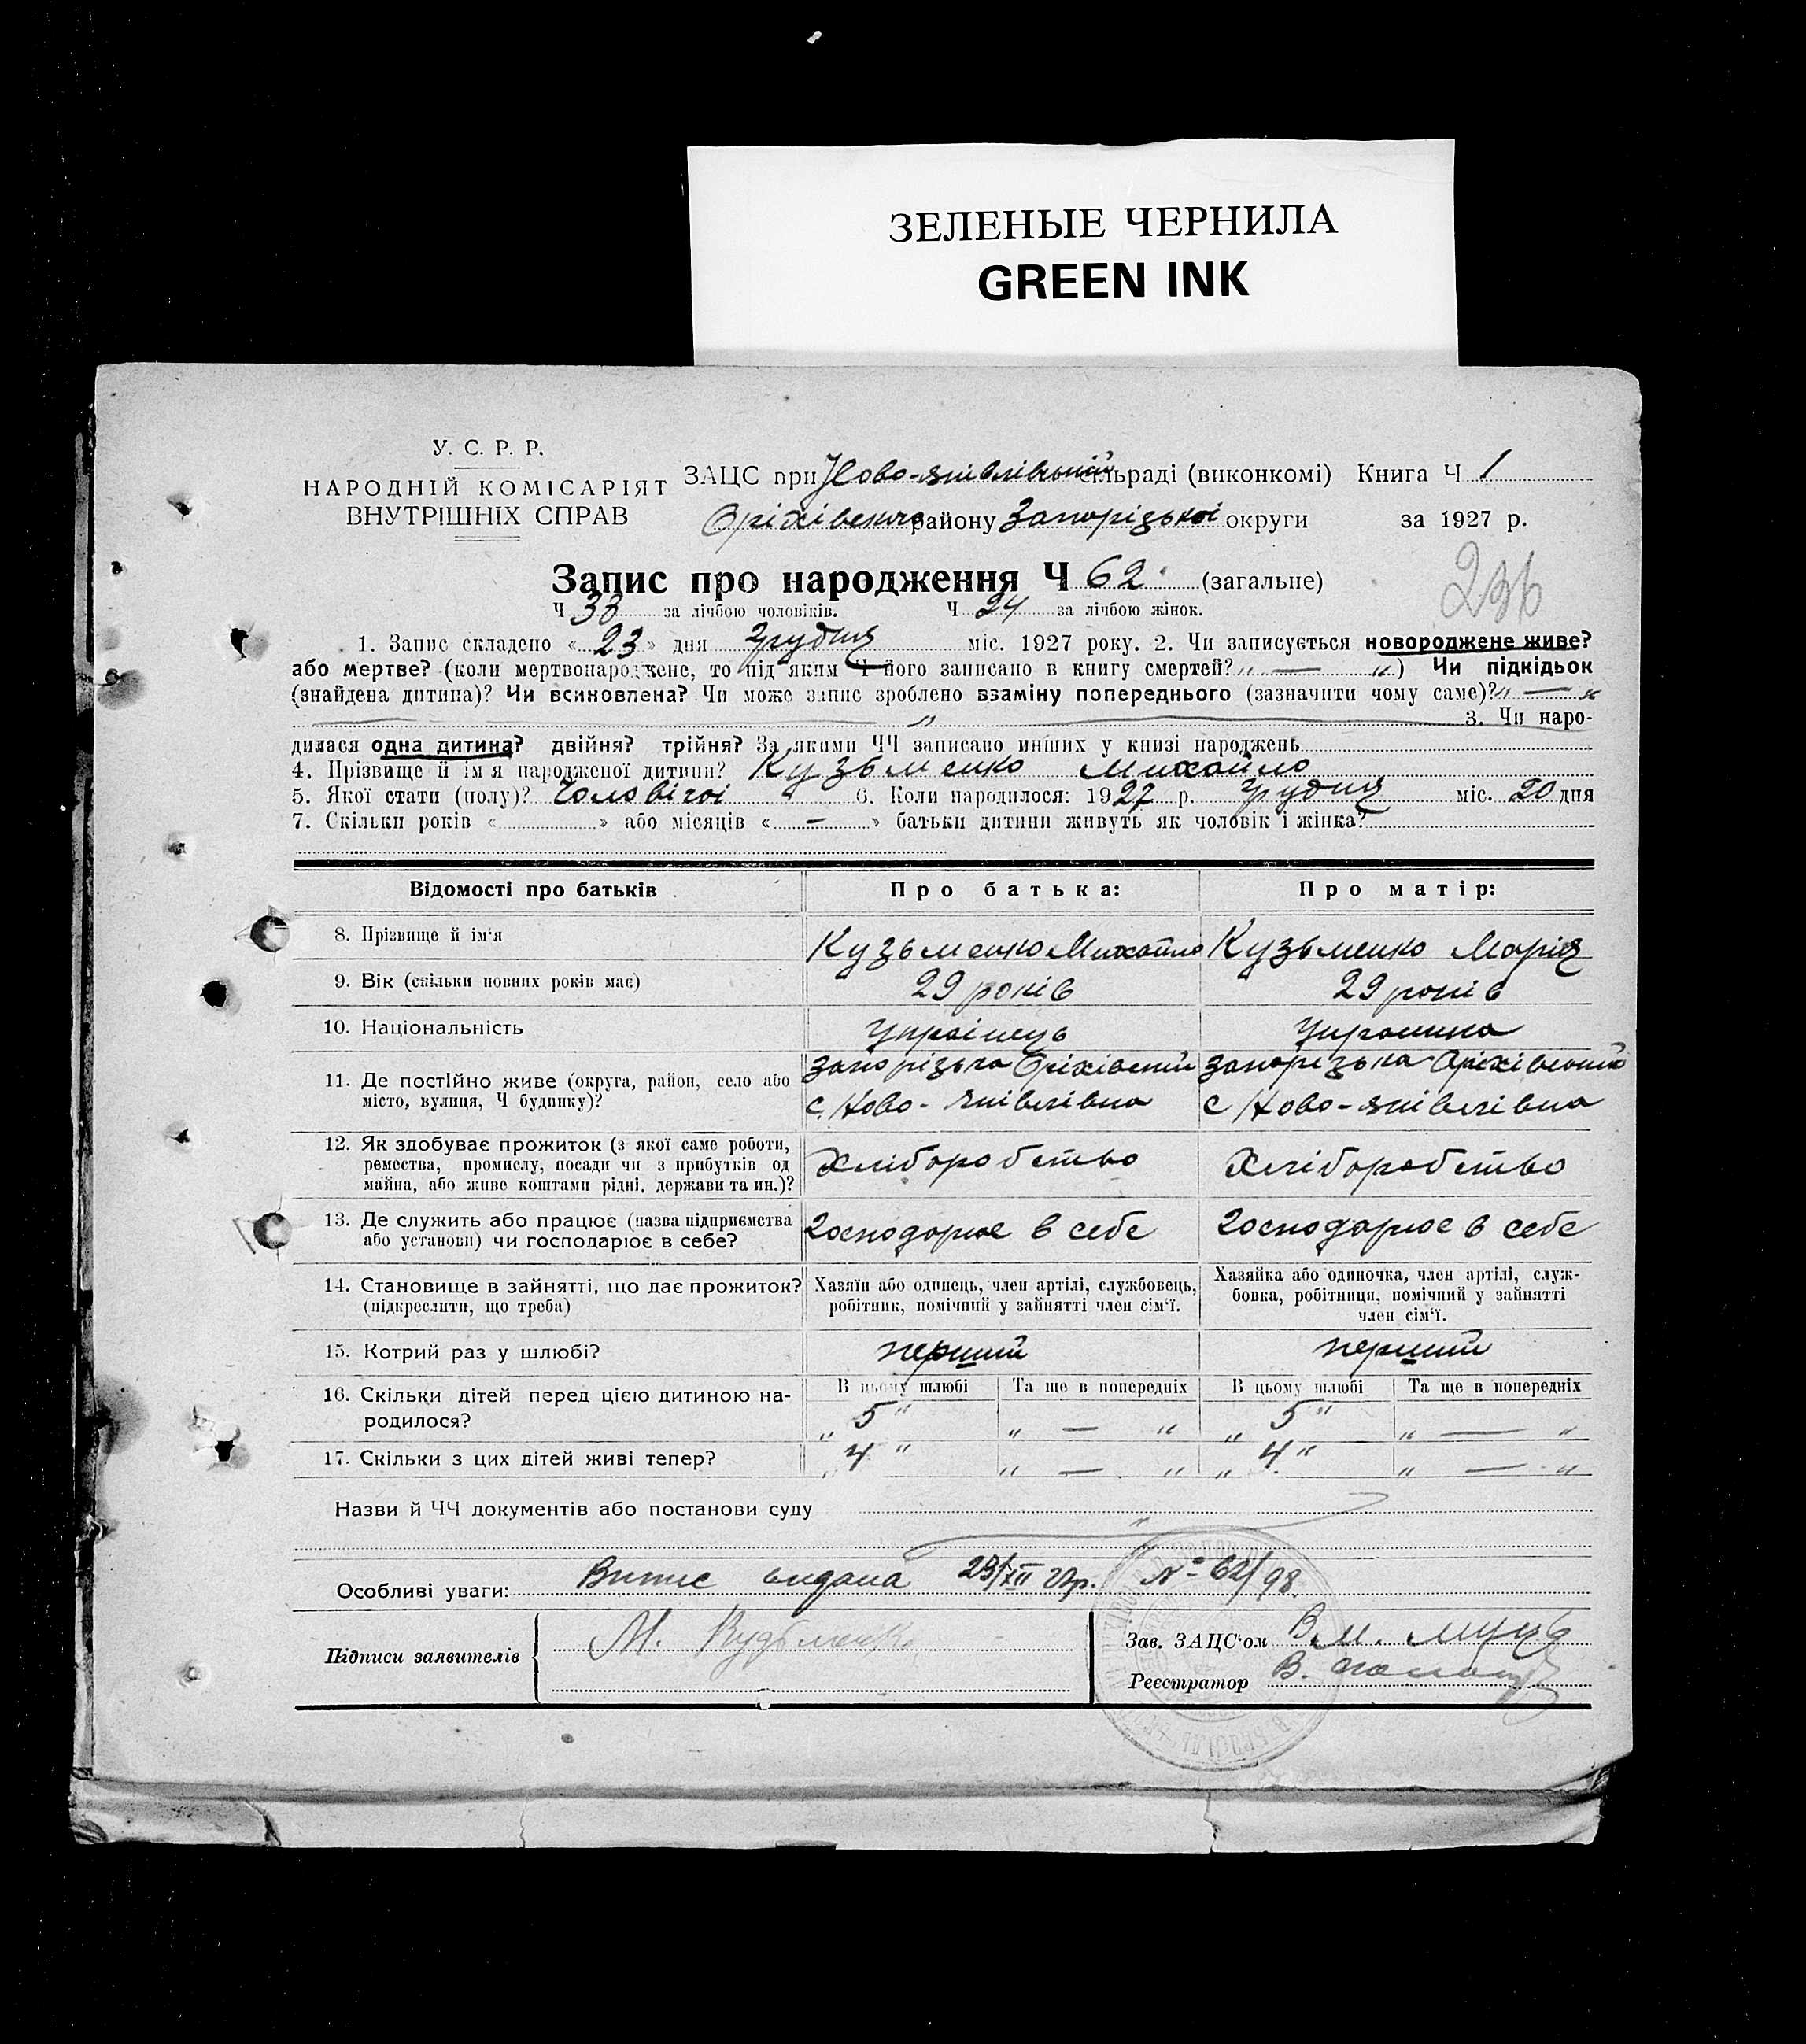 ЗЕЛЕНЫЕ ЧЕРНИЛА
GREEN INK
У. С. Р. Р.
НАРОДНІЙ КОМІСАРІЯТ
ВНУТРІШНІХ СПРАВ
ЗАЦС при Ново-Янівлівській сільраді (виконкомі) Книга Ч 1
Оріхівського району Запорізької округи за 1927 р.
Запис про народження Ч 62 (загальне)
236
Ч 38 за лічбою чоловіків. Ч 24 за лічбою жінок.
1. Запис складено « 23 » дня Грудня міс. 1927 року. 2. Чи записується новороджене живе?
або мертве? (коли мертвонароджене, то під яким Ч його записано в книгу смертей? „ — “) Чи підкідьок
(знайдена дитина)? Чи всиновлена? Чи може запис зроблено взаміну попереднього (зазначити чому саме)? „ — “
„ 3. Чи наро-
дилася одна дитина? двійня? трійня? За якими ЧЧ записано инших у книзі народжень
4. Прізвище й ім'я народженої дитини? Кузьменко Михайло
5. Якої стати (полу)? Чоловічої 6. Коли народилося: 1927 р. Грудня міс. 20 дня
7. Скільки років « » або місяців « — » батьки дитини живуть як чоловік і жінка?
Відомості про батьків Про батька: Про матір:
8. Прізвище й ім'я Кузьменко Михайло Кузьменко Марія
9. Вік (скільки повних років має) 29 років 29 років
10. Національність Українець Українка
11. Де постійно живе (округа, район, село або Запорізька Оріхівский Запорізька Оріхівский
місто, вулиця, Ч будинку)? с. Ново-Янівлівка с. Ново-Янівлівка
12. Як здобуває прожиток (з якої саме роботи,
ремества, промислу, посади чи з прибутків од Хліборобство Хліборобство
майна, або живе коштами рідні, держави та ин.)?
13. Де служить або працює (назва підприємства Господарює в себе Господарює в себе
або установи) чи господарює в себе?
14. Становище в зайнятті, що дає прожиток? Хазяїн або одинець, член артілі, службовець, Хазяйка або одиночка, член артілі, служ-
(підкреслити, що треба) робітник, помічний у зайнятті член сім'ї. бовка, робітниця, помічний у зайнятті
член сім'ї.
15. Котрий раз у шлюбі? перший перший
16. Скільки дітей перед цією дитиною на- В цьому шлюбі Та ще в попередніх В цьому шлюбі Та ще в попередніх
родилося? „ 5 “ „ — “ „ 5 “ „ — “
17. Скільки з цих дітей живі тепер? „ 4 “ „ — “ „ 4 “ „ — “
Назви й ЧЧ документів або постанови суду
Особливі уваги: Витис видана 23/XII 27р. № 62/98.
Підписи заявителів М. Кузьменко Зав. ЗАЦС'ом
Реєстратор В.